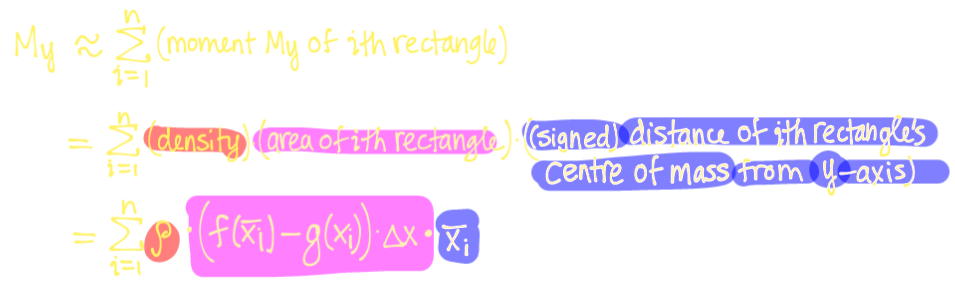 My ≈ ∑_{i=1}^{n} (moment My of ith rectangle)
= ∑_{i=1}^{n} (density) (area of ith rectangle) · ((signed) distance of ith rectangle's
centre of mass from y-axis)
= ∑_{i=1}^{n} ρ · (f(x̄ᵢ) − g(xᵢ)) · Δx · x̄ᵢ